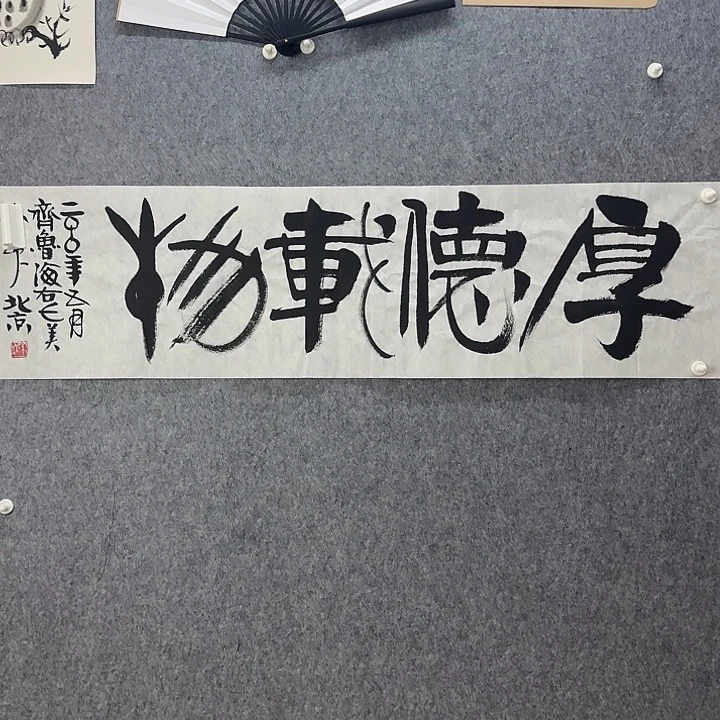 厚德載物
二〇〇年五月
齊魯海石已美
北京